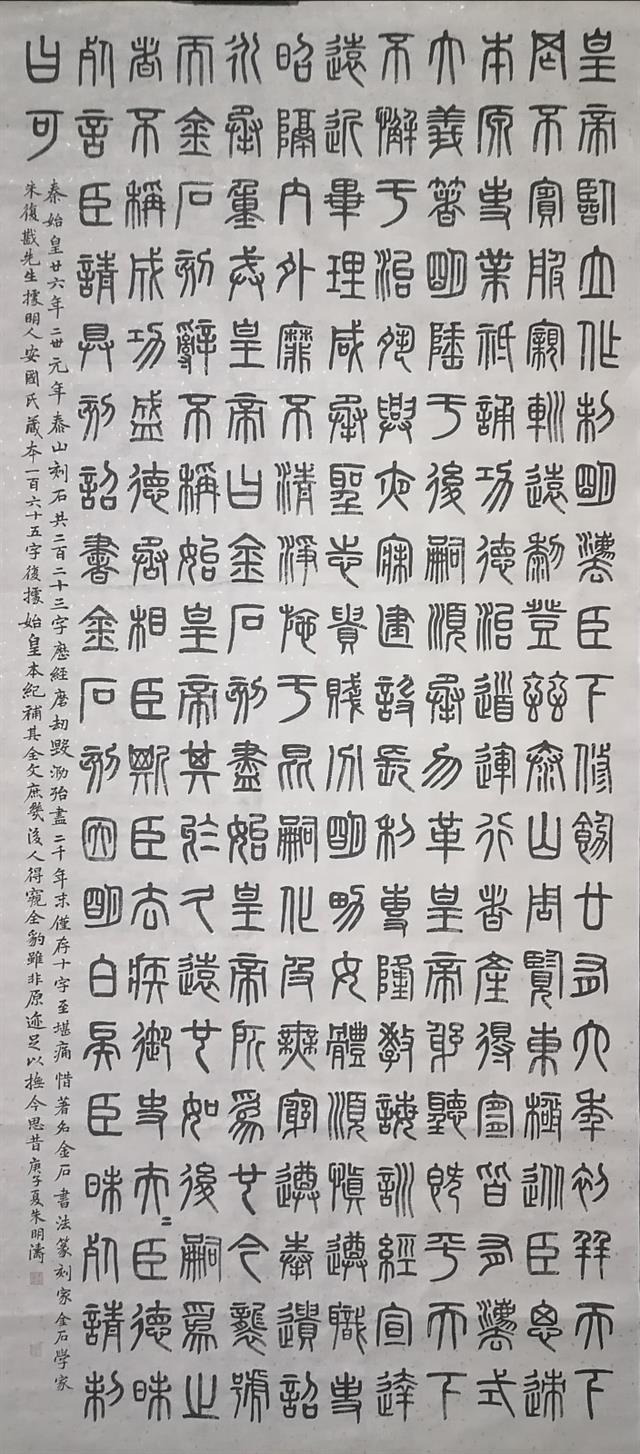 皇帝臨立作制明灋臣下修飭廿有六年初并天下
罔不賓服親䡅遠黎登茲泰山周覽東極從臣思迹
本原事業祗誦功德治道運行者產得宜皆有灋式
大義箸明陲于後嗣順承勿革皇帝躬聽既平天下
不懈于治夙興夜寐建設長利專隆教誨訓經宣達
遠近畢理咸承聖志貴賤分明男女體順慎遵職事
昭隔內外靡不清淨施于昆嗣化及無窮遵奉遺詔
永承重戒皇帝曰金石刻盡始皇帝所為也今襲號
而金石刻辭不稱始皇帝其於久遠也如後嗣為之
者不稱成功盛德丞相臣斯臣去疾御史夫=臣德昧
死言臣請具刻詔書金石刻因明白矣臣昧死請制
曰可
秦始皇廿六年二世元年泰山刻石共二百二十三字歷經磨劫毀泐殆盡二千年末僅存十字至堪痛惜著名金石書法篆刻家金石學家
朱復戡先生據明人安國氏藏本一百六十五字後據始皇本紀補其全文庶幾後人得窺全豹雖非原迹足以撫今思昔庚子夏朱明濤